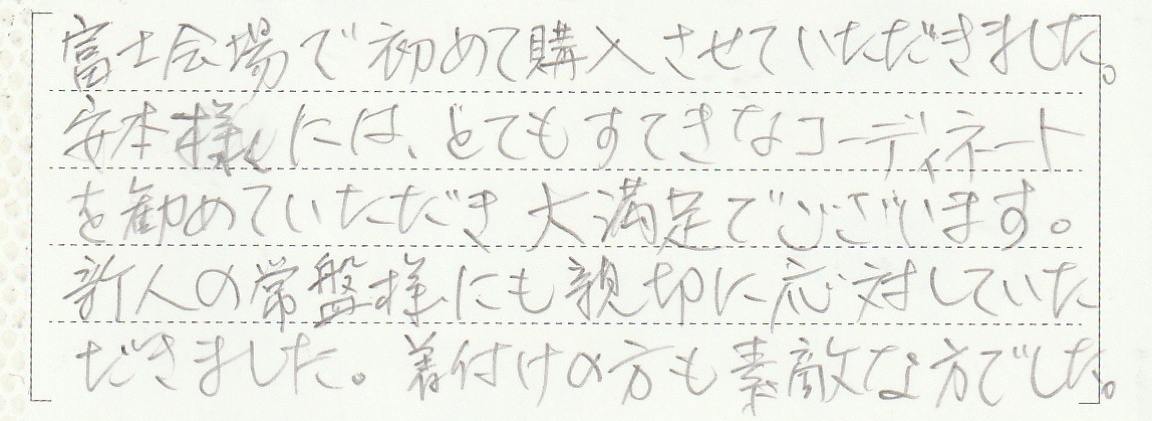 富士会場で初めて購入させていただきました。
安本様には、とてもすてきなコーディネート
を勧めていただき大満足でございます。
新人の常盤様にも親切に応対していた
だきました。着付けの方も素敵な方でした。